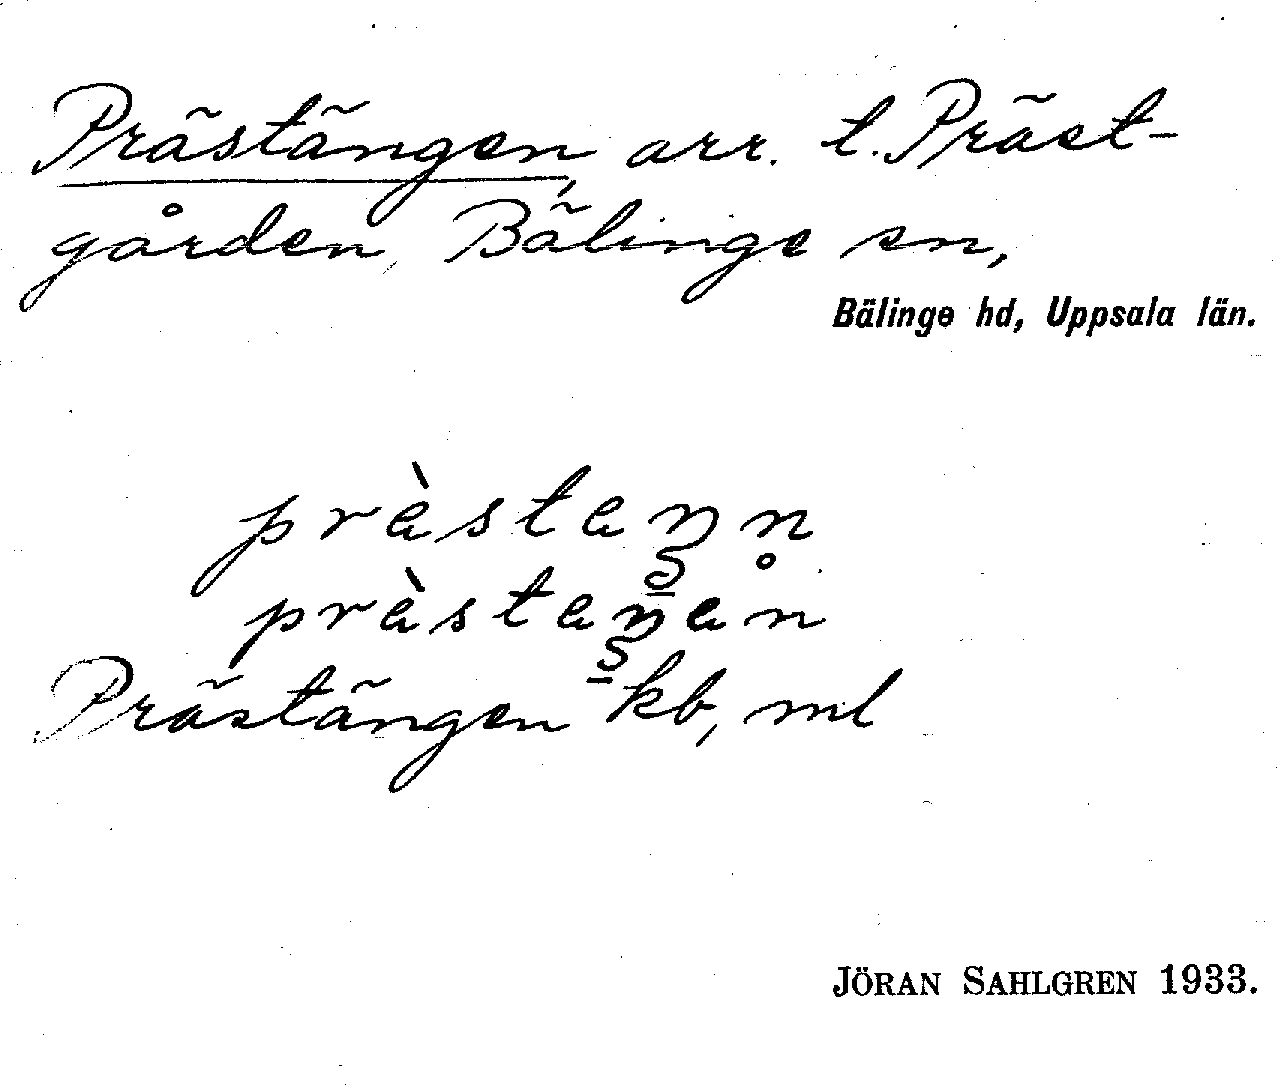 Prästängen, arr. t. Präst-
gården, Bälinge sn,
Bälinge hd, Uppsala län.
Prästängen kb, ml
JÖRAN SAHLGREN 1933.